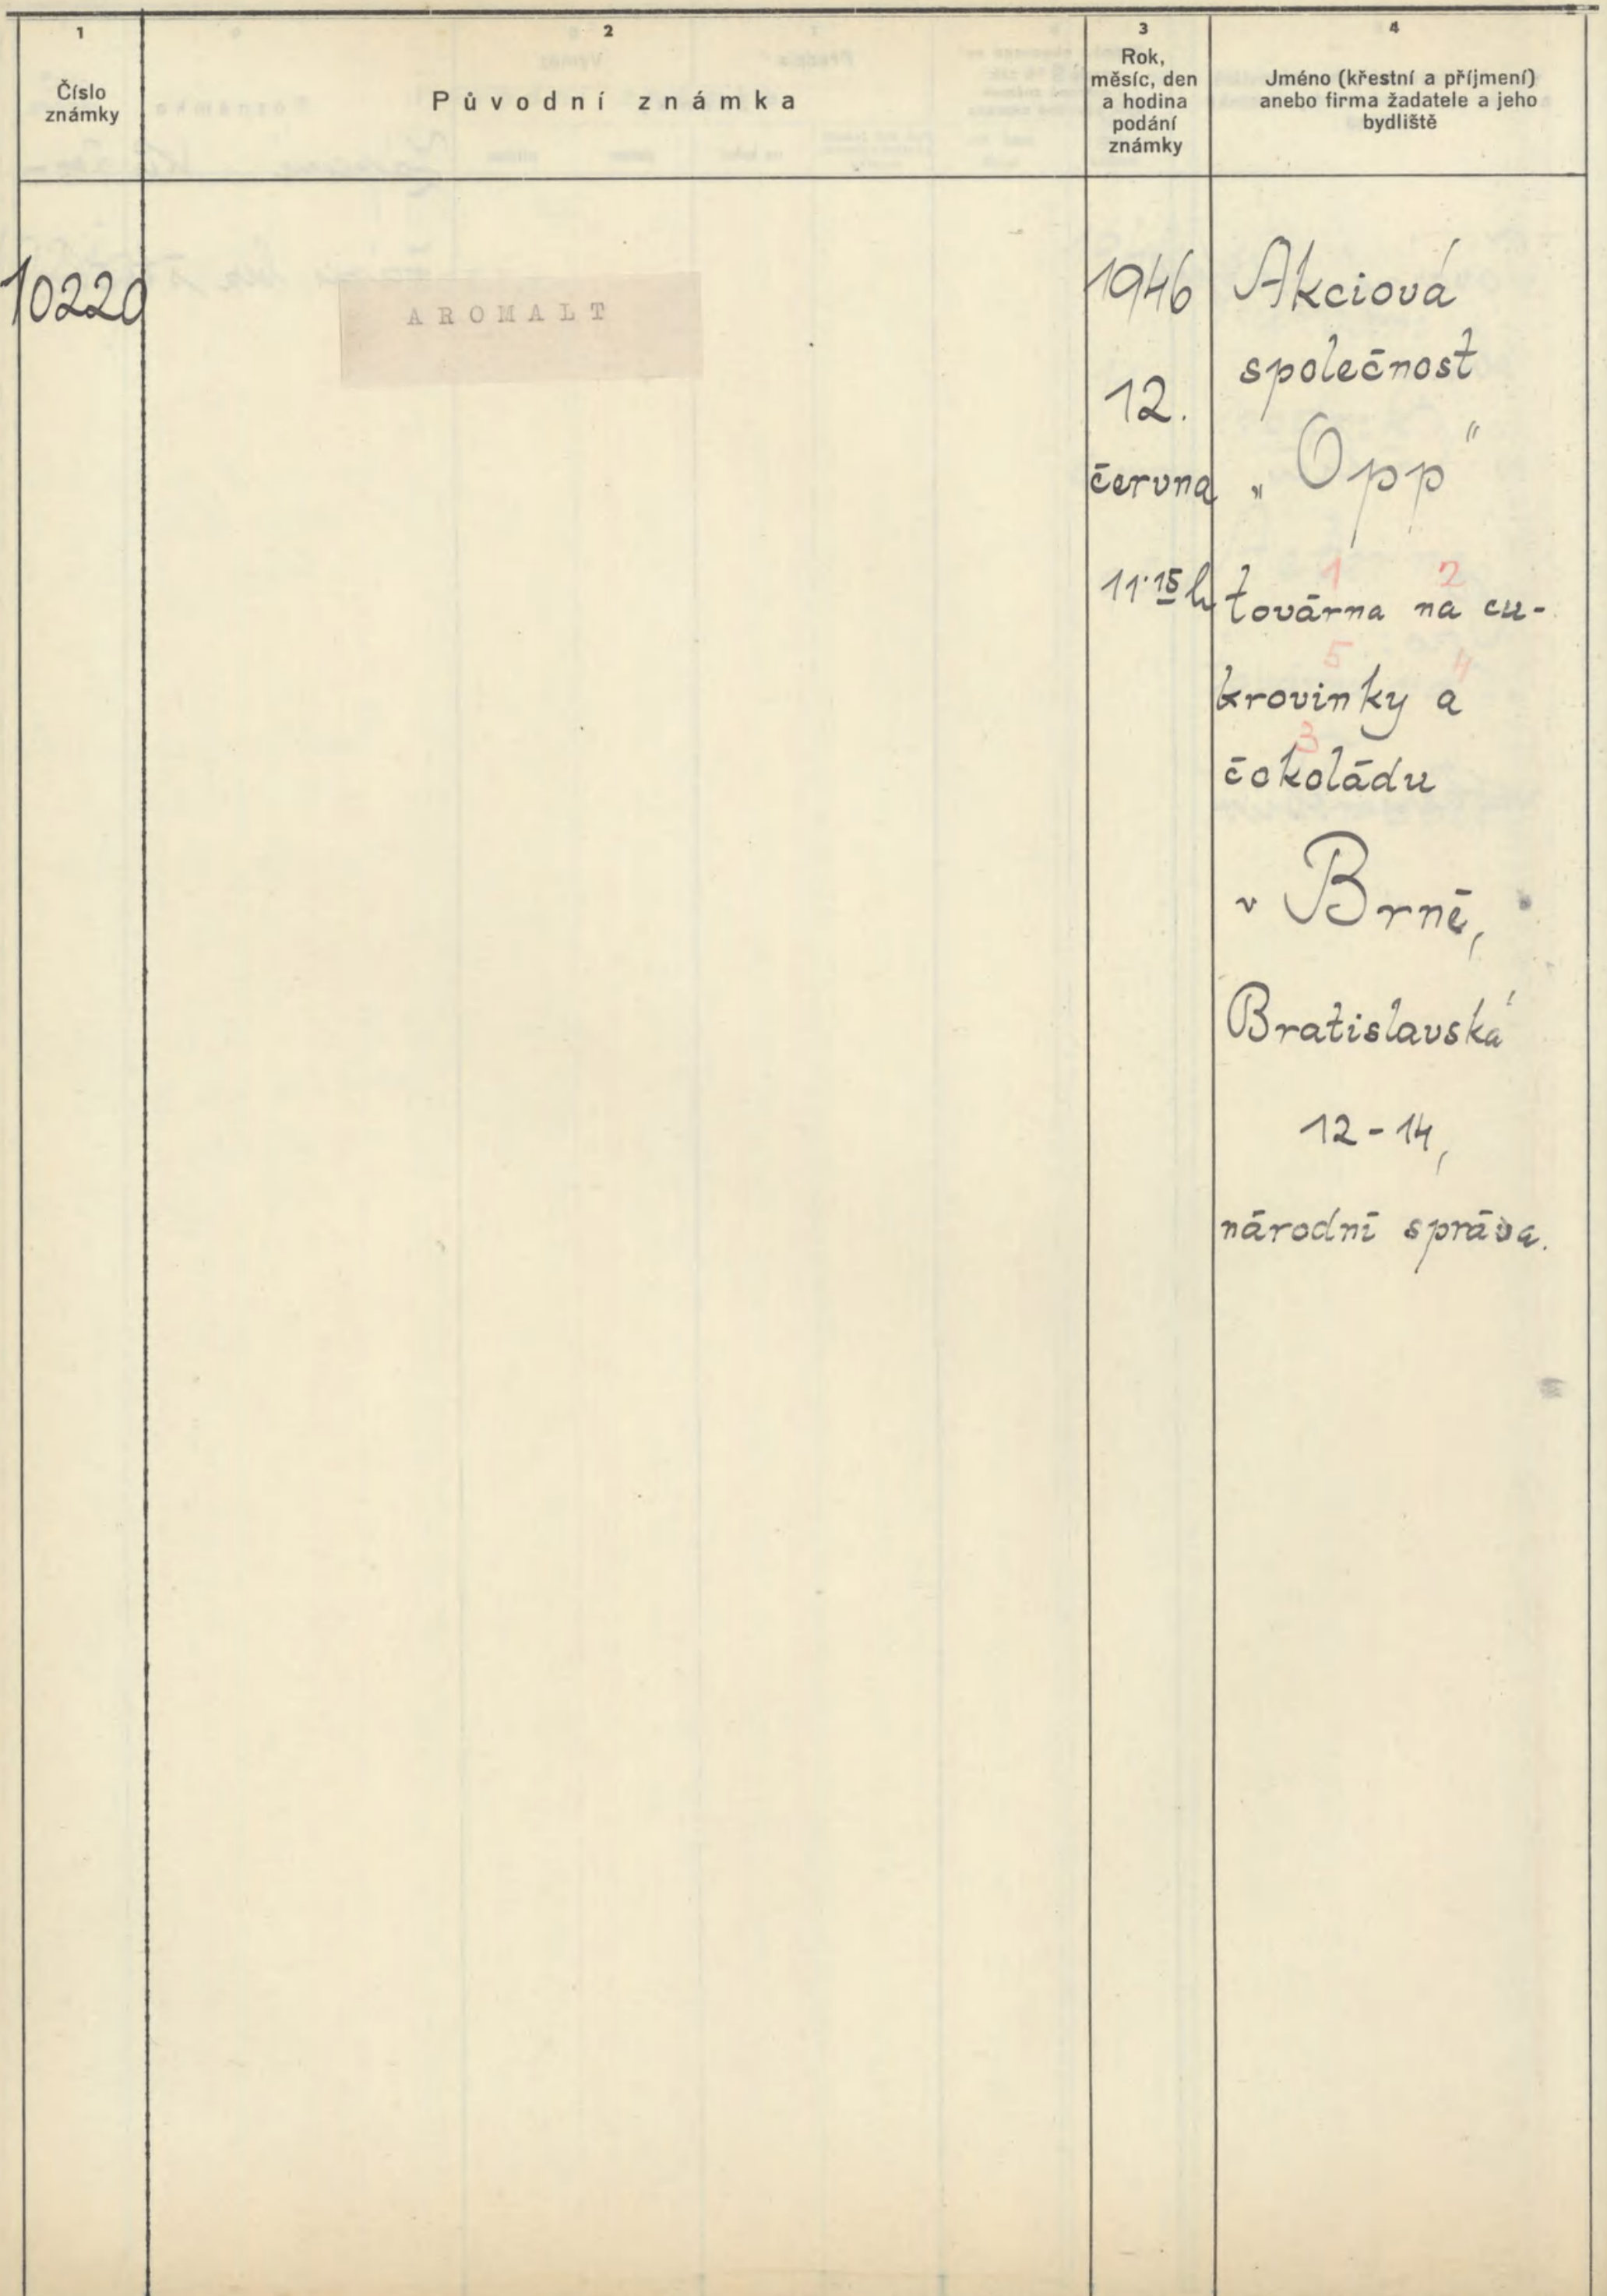 1
Číslo
známky
2
Původní známka
3
Rok,
měsíc, den
a hodina
podání
známky
4
Jméno (křestní a příjmení)
anebo firma žadatele a jeho
bydliště
10220
AROMALT
1946
12.
června
11·15 h
Akciová
společnost
„Opp"
1 2
továrna na cu-
5 4
krovinky a
3
čokoládu
v Brně,
Bratislavská
12-14,
národní správa.